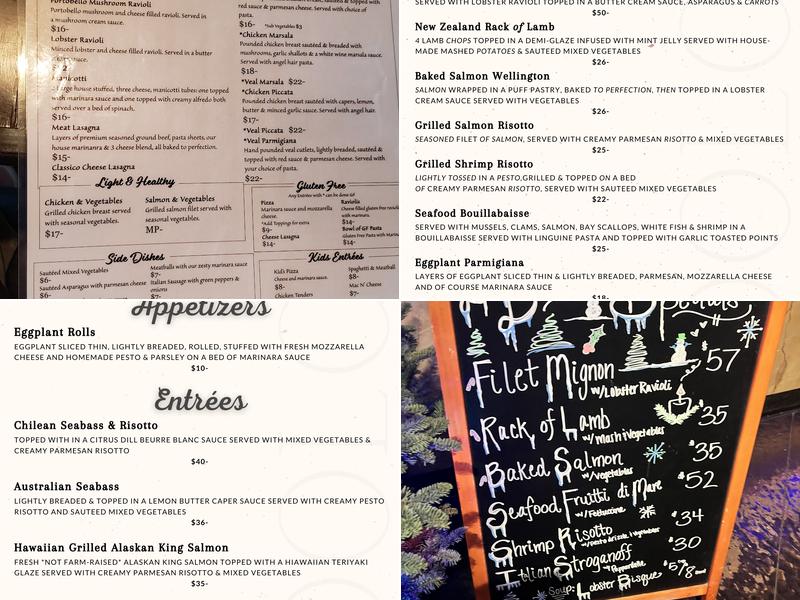 Portobello Mushroom Ravioli
Portobello mushroom and cheese filled ravioli. Served in
a mushroom cream sauce.
$16-
Lobster Ravioli
Minced lobster and cheese filled ravioli. Served in a butter
Manicotti
large house stuffed, three cheese, manicotti tubes: one topped
with marinara sauce and one topped with creamy alfredo both
served over a bed of spinach.
$16-
Meat Lasagna
Layers of premium seasoned ground beef, pasta sheets, our
house marinara & 3 cheese blend, all baked to perfection.
$15-
Classico Cheese Lasagna
$14-
topped with a red sauce & parmesan cheese.
Served with your choice of
pasta.
$16- *Sub Vegetables $3
*Chicken Marsala
Pounded chicken breast sautéed & breaded with
mushrooms, garlic shallots & a white wine marsala sauce.
Served with angel hair pasta.
$18-
*Veal Marsala $22-
*Chicken Piccata
Pounded chicken breast sautéed with capers, lemon,
butter & minced garlic sauce. Served with angel hair.
$17-
*Veal Piccata $22-
*Veal Parmigiana
Hand pounded veal cutlets, lightly breaded, sautéed &
topped with red sauce & parmesan cheese. Served with
your choice of pasta.
$22-
Light & Healthy
Chicken & Vegetables
Grilled chicken breast served
with seasonal vegetables.
$17-
Salmon & Vegetables
Grilled salmon filet served with
seasonal vegetables.
MP-
Gluten Free
Any Entrée with * can be done GF
Pizza
Marinara sauce and mozzarella
cheese.
*Add Toppings for extra
$9-
Cheese Lasagna
$14-
Raviolis
Cheese filled gluten free ravioli
with marinara.
$14-
Bowl of GF Pasta
Gluten Free Pasta with Marinara
$14-
Side Dishes
Sautéed Mixed Vegetables
$6-
Sautéed Asparagus with parmesan cheese
$6-
Meatballs with our zesty marinara sauce
$7-
Italian Sausage with green peppers &
onions
$7-
Kids Entrées
Kid's Pizza
Cheese and marinara sauce.
$8-
Chicken Tenders
Spaghetti & Meatball
$8-
Mac N' Cheese
$7-
SERVED WITH LOBSTER RAVIOLI TOPPED IN A BUTTER CREAM SAUCE, ASPARAGUS & CARROTS
$50-
New Zealand Rack of Lamb
4 LAMB CHOPS TOPPED IN A DEMI-GLAZE INFUSED WITH MINT JELLY SERVED WITH HOUSE-
MADE MASHED POTATOES & SAUTEED MIXED VEGETABLES
$26-
Baked Salmon Wellington
SALMON WRAPPED IN A PUFF PASTRY, BAKED TO PERFECTION, THEN TOPPED IN A LOBSTER
CREAM SAUCE SERVED WITH VEGETABLES
$26-
Grilled Salmon Risotto
SEASONED FILET OF SALMON, SERVED WITH CREAMY PARMESAN RISOTTO & MIXED VEGETABLES
$25-
Grilled Shrimp Risotto
LIGHTLY TOSSED IN A PESTO,GRILLED & TOPPED ON A BED
OF CREAMY PARMESAN RISOTTO, SERVED WITH SAUTEED MIXED VEGETABLES
$22-
Seafood Bouillabaisse
SERVED WITH MUSSELS, CLAMS, SALMON, BAY SCALLOPS, WHITE FISH & SHRIMP IN A
BOUILLABAISSE SERVED WITH LINGUINE PASTA AND TOPPED WITH GARLIC TOASTED POINTS
$25-
Eggplant Parmigiana
LAYERS OF EGGPLANT SLICED THIN & LIGHTLY BREADED, PARMESAN, MOZZARELLA CHEESE
AND OF COURSE MARINARA SAUCE
$18-
Appetizers
Eggplant Rolls
EGGPLANT SLICED THIN, LIGHTLY BREADED, ROLLED, STUFFED WITH FRESH MOZZARELLA
CHEESE AND HOMEMADE PESTO & PARSLEY ON A BED OF MARINARA SAUCE
$10-
Entrées
Chilean Seabass & Risotto
TOPPED WITH IN A CITRUS DILL BEURRE BLANC SAUCE SERVED WITH MIXED VEGETABLES &
CREAMY PARMESAN RISOTTO
$40-
Australian Seabass
LIGHTLY BREADED & TOPPED IN A LEMON BUTTER CAPER SAUCE SERVED WITH CREAMY PESTO
RISOTTO AND SAUTEED MIXED VEGETABLES
$36-
Hawaiian Grilled Alaskan King Salmon
FRESH "NOT FARM-RAISED" ALASKAN KING SALMON TOPPED WITH A HIAWAIIAN TERIYAKI
GLAZE SERVED WITH CREAMY PARMESAN RISOTTO & MIXED VEGETABLES
$35-
Specials
Filet Mignon $57
w/Lobster Ravioli
Rack of Lamb $35
w/mash & Vegetables
Baked Salmon $35
w/Vegetables
Seafood Frutti di Mare $52
w/Fettuccine
Shrimp Risotto $34
w/pesto drizzle, Vegetables
Italian Stroganoff $30
w/Pappardelle
Soup: Lobster Bisque $7/8